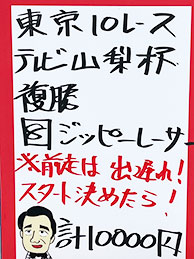 東京10レース
テレビ山梨杯
複勝
図ジッピーレーサー
※前走は出遅れ!
スタート決めたら!
計10000円